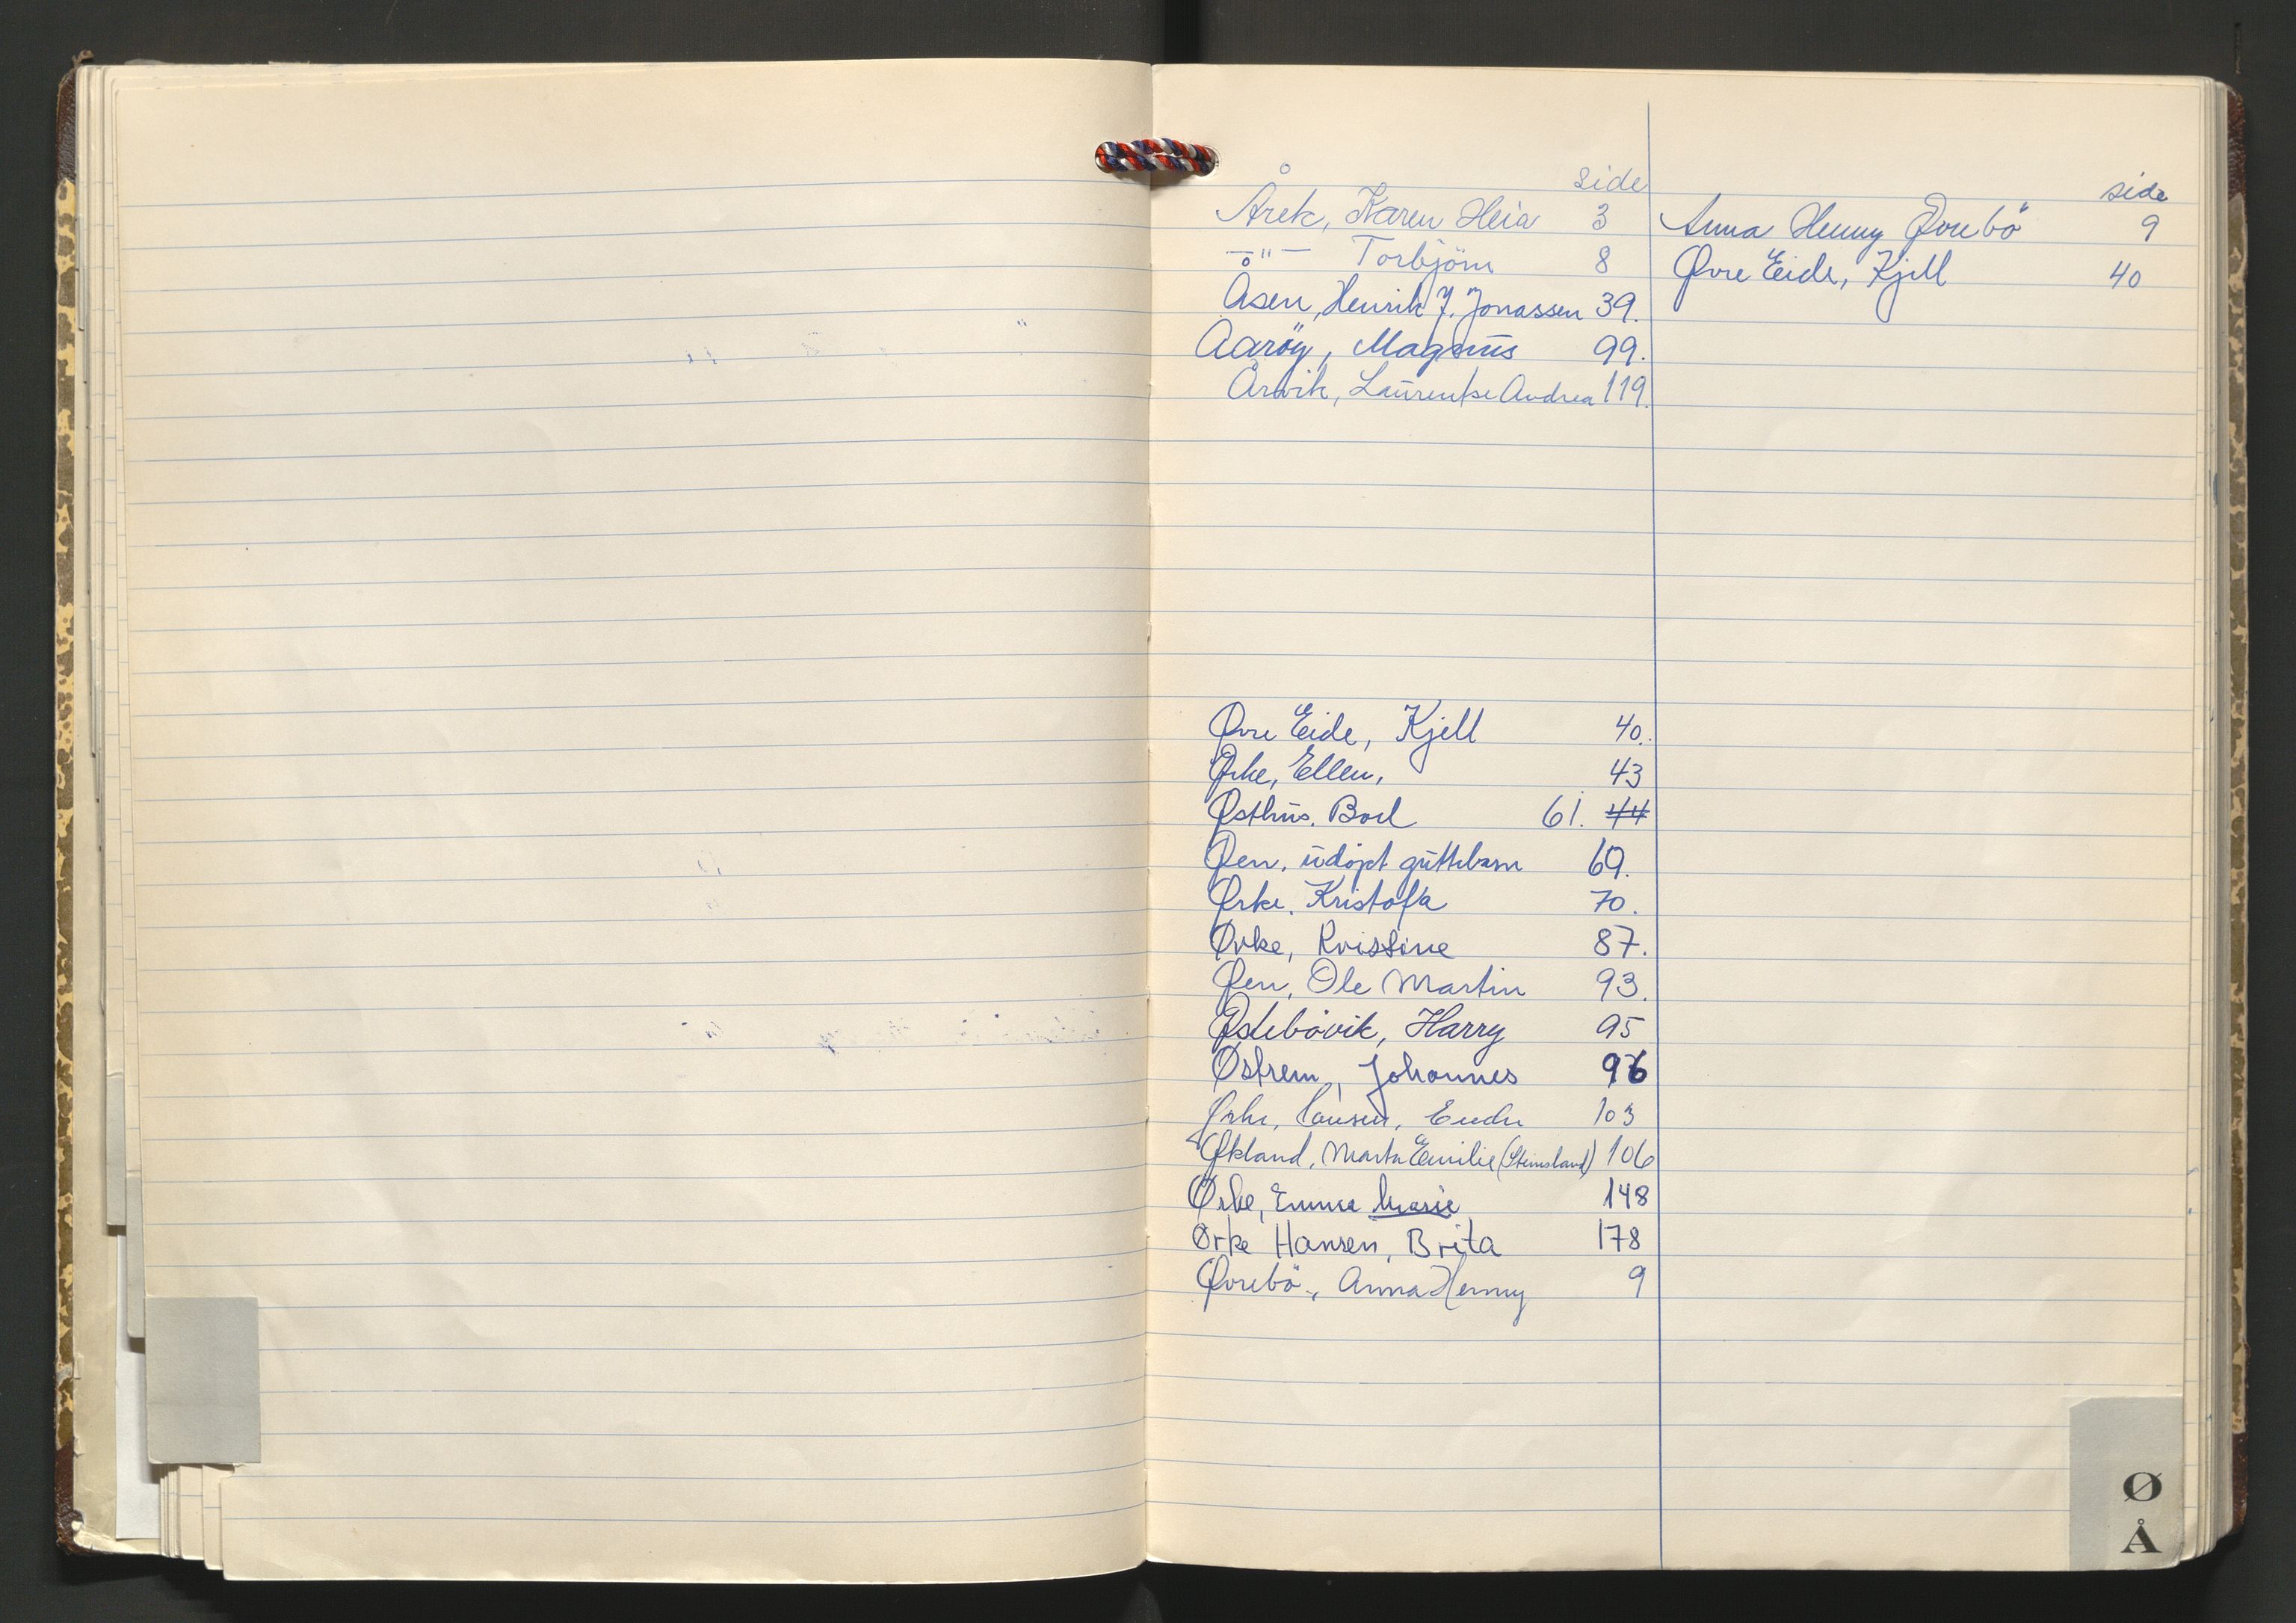 side
Årek, Karen Heia 3
—"— Torbjörn 8
Åsen, Henrik J. Jonassen 39.
Aaröy, Magnus 99.
Årvik, Laurentse Andrea 119.
side
Anna Henny Øvrebö 9
Øvre Eide, Kjell 40
Øvre Eide, Kjell 40.
Ørke, Ellen, 43
Østhus, Bod 61. 44
Øen, udöpt guttebarn 69.
Ørke, Kristofa 70.
Ørke, Kristine 87.
Øen, Ole Martin 93.
Østebövik, Harry 95
Østrem, Johannes 96
Ørke, 103
Økland, Marta Emilie (Steinsland) 106
Ørke, Emma Marie 148
Ørke Hansen, Brita 178
Øvrebö, Anna Henny 9
Ø
Å